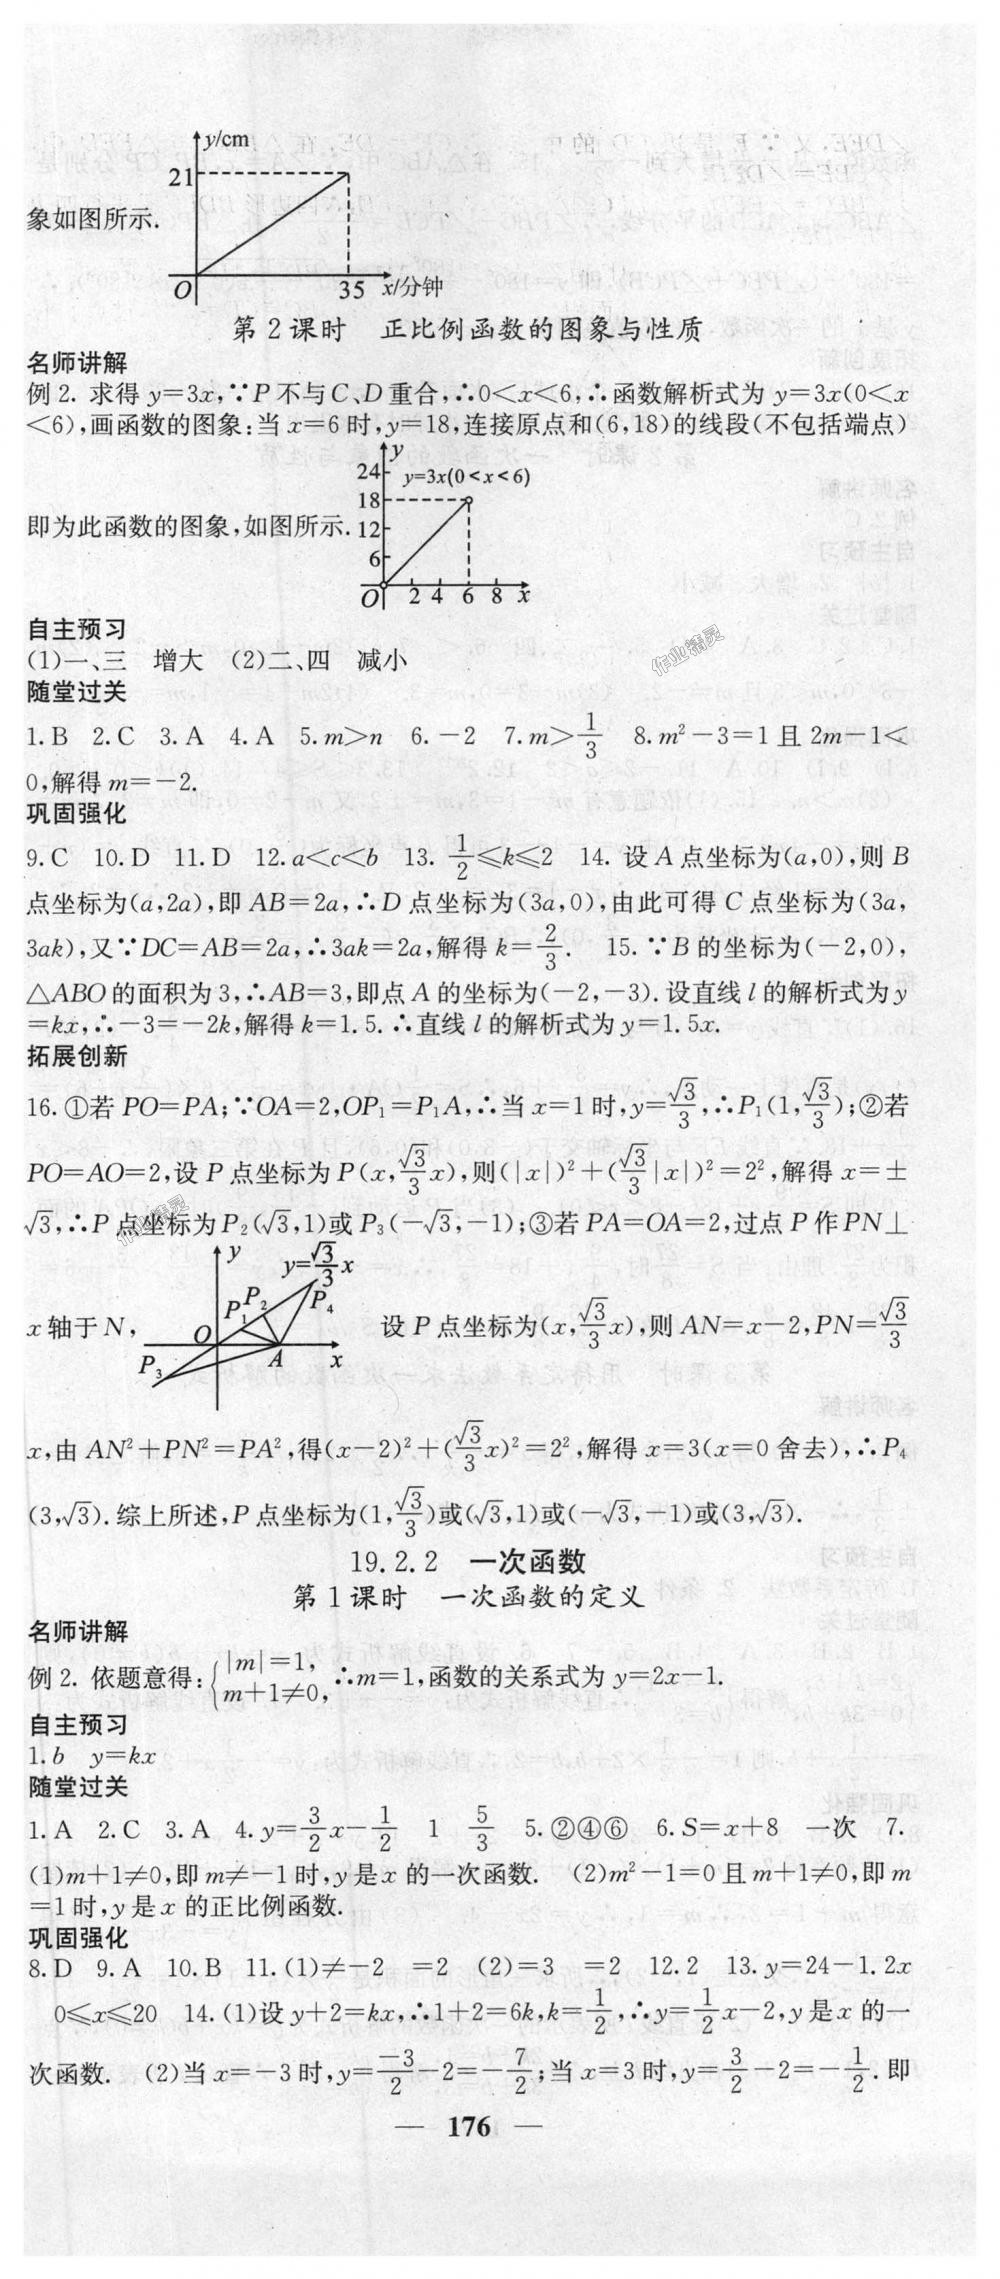 y/cm
21
象如图所示.
O 35 x/分钟
第2课时 正比例函数的图象与性质
名师讲解
例2. 求得 y=3x,∵P不与C、D重合,∴0<x<6,∴函数解析式为 y=3x(0<x
<6),画函数的图象:当x=6时,y=18,连接原点和(6,18)的线段(不包括端点)
y
24 y=3x(0<x<6)
18
即为此函数的图象,如图所示. 12
6
O 2 4 6 8 x
自主预习
(1)一、三 增大 (2)二、四 减小
随堂过关
1.B 2.C 3.A 4.A 5.m>n 6.-2 7.m>1/3 8.m²-3=1且2m-1<
0,解得m=-2.
巩固强化
9.C 10.D 11.D 12.a<c<b 13. 1/2≤k≤2 14. 设A点坐标为(a,0),则B
点坐标为(a,2a),即AB=2a,∴D点坐标为(3a,0),由此可得C点坐标为(3a,
3ak),又∵DC=AB=2a,∴3ak=2a,解得k=2/3. 15. ∵B的坐标为(-2,0),
△ABO的面积为3,∴AB=3,即点A的坐标为(-2,-3).设直线l的解析式为y
=kx,∴-3=-2k,解得k=1.5.∴直线l的解析式为y=1.5x.
拓展创新
16.①若PO=PA;∵OA=2,OP₁=P₁A,∴当x=1时,y=√3/3,∴P₁(1,√3/3);②若
PO=AO=2,设P点坐标为P(x,√3/3x),则(|x|)²+(√3/3|x|)²=2²,解得x=±
√3,∴P点坐标为P₂(√3,1)或P₃(-√3,-1);③若PA=OA=2,过点P作PN⊥
y y=√3/3x
P₁ P₂ P₄
x轴于N, O A x P₃ 设P点坐标为(x,√3/3x),则AN=x-2,PN=√3/3
x,由AN²+PN²=PA²,得(x-2)²+(√3/3x)²=2²,解得x=3(x=0舍去),∴P₄
(3,√3).综上所述,P点坐标为(1,√3/3)或(√3,1)或(-√3,-1)或(3,√3).
19.2.2 一次函数
第1课时 一次函数的定义
名师讲解
例2. 依题意得:{|m|=1, m+1≠0, ∴m=1,函数的关系式为y=2x-1.
自主预习
1.b y=kx
随堂过关
1.A 2.C 3.A 4.y=3/2x-1/2 1 5/3 5.②④⑥ 6.S=x+8 一次 7.
(1)m+1≠0,即m≠-1时,y是x的一次函数. (2)m²-1=0且m+1≠0,即m
=1时,y是x的正比例函数.
巩固强化
8.D 9.A 10.B 11.(1)≠-2 =2 (2)=3 =2 12.2 13.y=24-1.2x
0≤x≤20 14.(1)设y+2=kx,∴1+2=6k,k=1/2,∴y=1/2x-2,y是x的一
次函数. (2)当x=-3时,y=-3/2-2=-7/2;当x=3时,y=3/2-2=-1/2.即
— 176 —